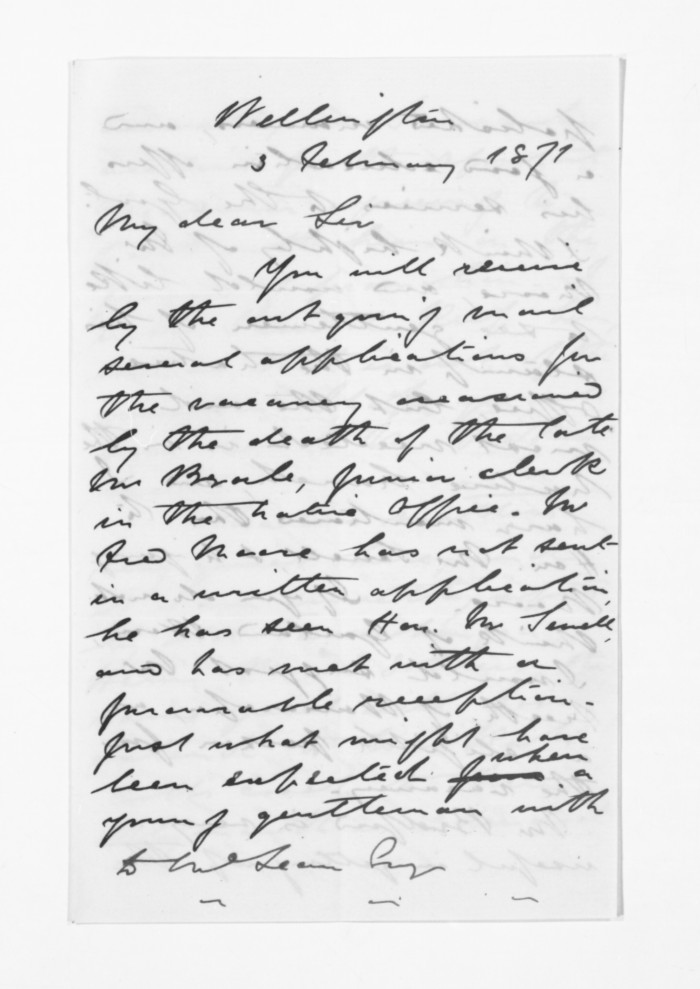 Wellington
3 February 1871
My dear Sir
You will receive
by the outgoing mail
several applications for
the vacancy occasioned
by the death of the late
Mr , junior clerk
in the Native Office. Mr
Fred Moore has not sent
in a written application,
he has seen Hon. Mr Sewell,
and has met with a
favourable reception -
just what might have
been expected when a
young gentleman with
D McLean Esqr